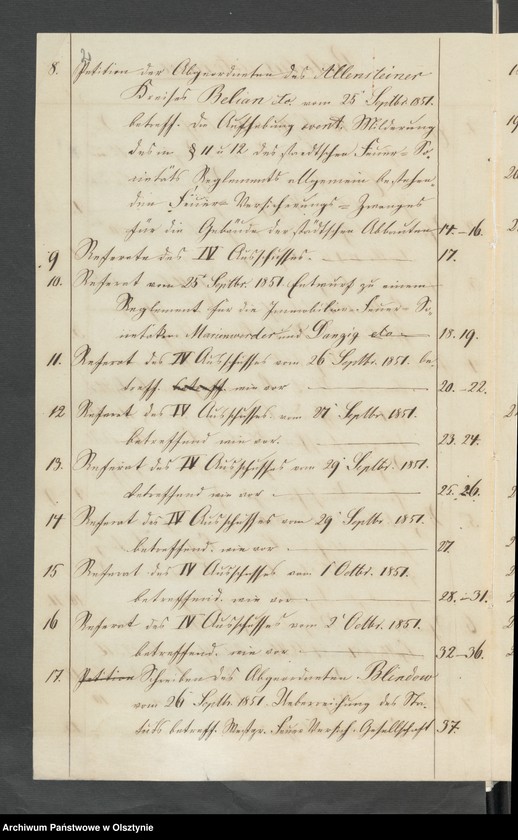 8. Petition der Abgeordneten des Allensteiner
Kreises Belian etc. vom 25 Septbr. 1851.
betreff. die Aufhebung event. Milderung
des in § 11 u 12 des staedtschen Feuer-So-
cietäts Reglements allgemein bestehen-
den Feuer-Versicherungs-Zwanges
für die Gebäude der städtschen Abbauten 14.–16.
9 Referate des IV Ausschusses. 17.
10. Referat vom 25 Septbr. 1851 Entwurf zu einem
Reglement für die Immobiliar-Feuer-So-
cietaet Marienwerder und Danzig etc 18. 19.
11. Referat des IV Ausschusses vom 26 Septbr. 1851. be-
treff. betreff. wie vor 20.–22.
12 Referat des IV Ausschusses vom 27 Septbr 1851.
betreffend wie vor. 23. 24.
13. Referat des IV Ausschusses vom 29 Septbr. 1851.
betreffend wie vor 25. 26.
14 Referat des IV Ausschusses vom 29 Septbr. 1851.
betreffend. wie vor 27.
15 Referat des IV Ausschusses vom 1 Octbr. 1851.
betreffend. wie vor 28.–31.
16 Referat des IV Ausschusses vom 2 Octbr. 1851.
betreffend. wie vor 32–36.
17. Petition Schreiben des Abgeordneten Blindow
vom 26 Septbr. 1851. Ueberreichung des Sta-
tuts betreff. Westpr. Feuer Versich. Gesellschaft 37.
Archiwum Państwowe w Olsztynie